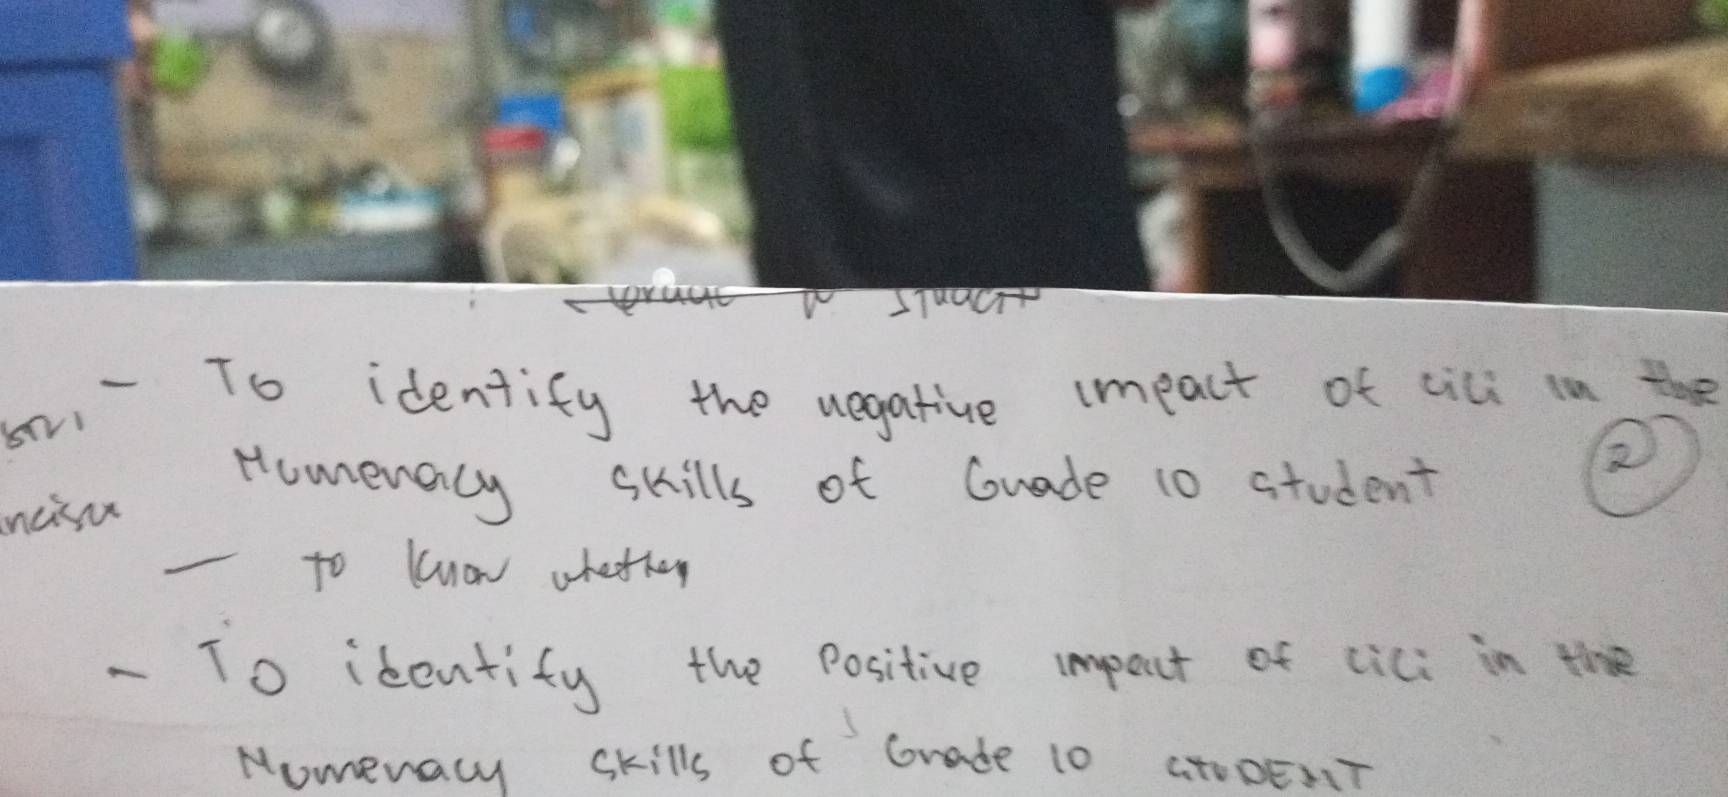 - To identify the negative impact of cici in the
Numeracy skills of Grade 10 student
2
- To know whether
- To identify the Positive impact of cici in the
Numeracy skills of Grade 10 STUDENT